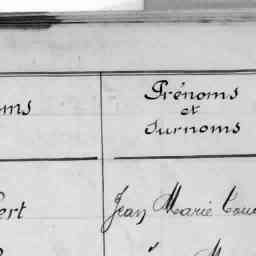 Prénoms
et
surnoms
oms
ert
Jean Marie